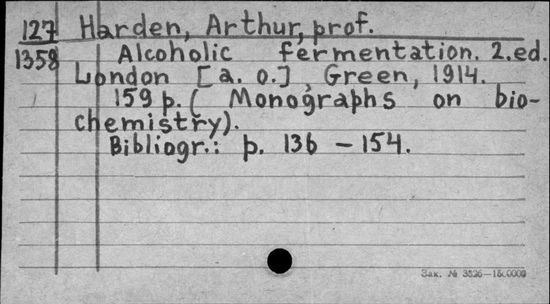 127 Harden, Arthur, prof.
1358 Alcoholic fermentation. 2.ed.
London [a. o.], Green, 1914.
159 p. ( Monographs on bio-
chemistry).
Bibliogr.: p. 136 – 154.
Зак. № 3526—150000